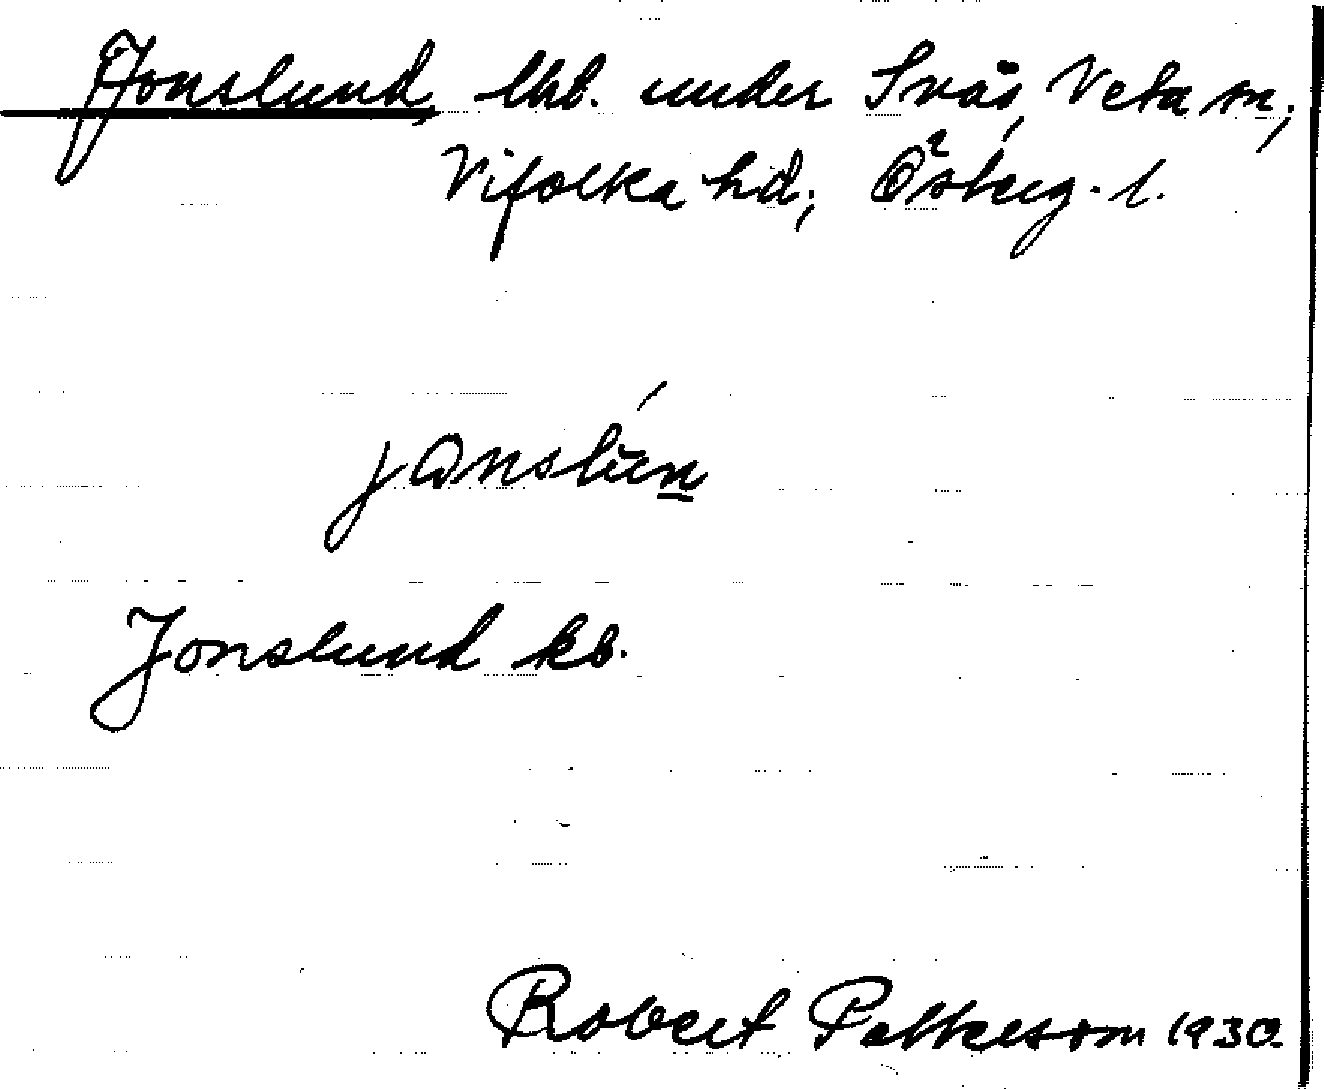 Jonslund, lhb. under Sväs, Veta sn,
Vifolka hd, Österg. l.
Jonslund kb.
Robert Pettersson 1930.